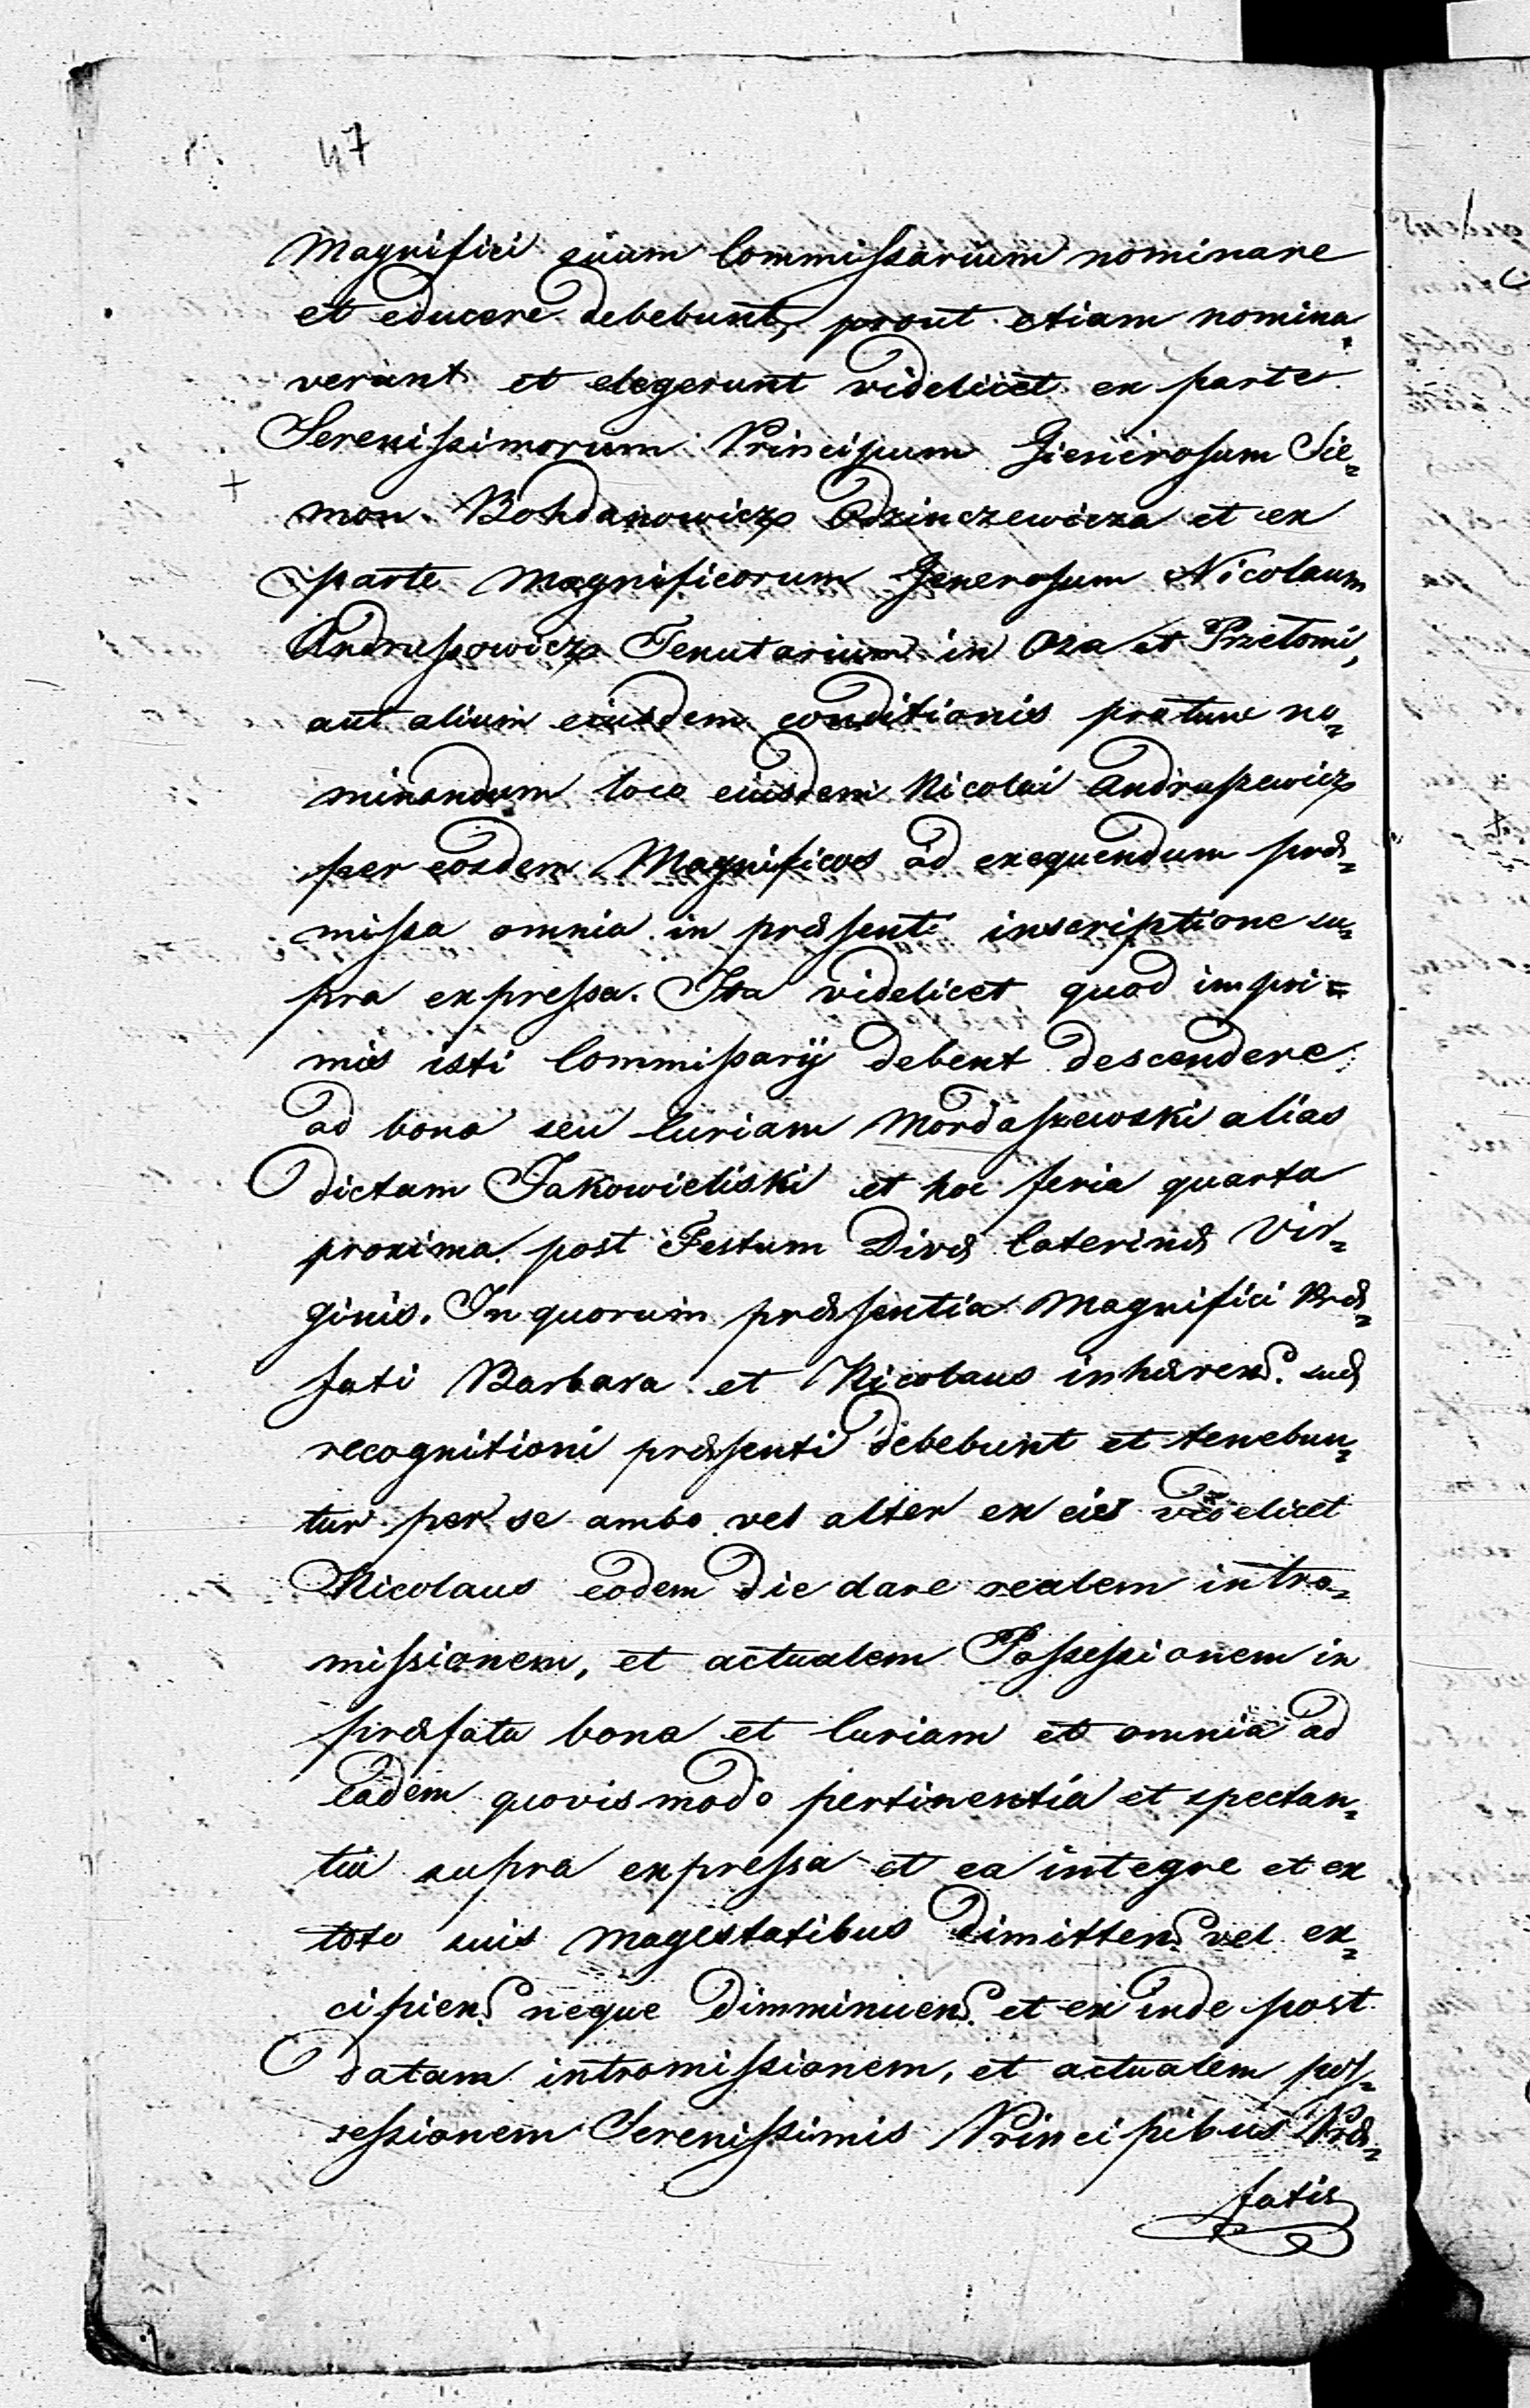 47
Magnifici suum Commissarium nominare
et educere debebunt, prout etiam nomina=
verunt et elegerunt videlicet ex parte
Serenissimorum Principum Generosum Sie=
mon Bohdanowicz Odzinczewicza et ex
parte Magnificorum Generosum Nicolaum
Andruszowicz Tenutarium in Oza et Przełomi,
aut alium eiusdem conditionis pro tunc no=
minandum loco eiusdem Nicolai Andruszewicz
per eosdem Magnificos ad exequendum præ=
missa omnia in præsenti inscriptione su=
pra expressa. Ita videlicet quod impri=
mis isti Commissarij debent descendere
ad bona seu Curiam Mordaszewski alias
dictam Jakowieliski et hoc feria quarta
proxima post Festum Divæ Caterinæ Vir=
ginis. In quorum præsentia Magnifici Præ=
fati Barbara et Nicolaus inhæren. suæ
recognitioni præsenti debebunt et tenebun=
tur per se ambo vel alter ex eis videlicet
Nicolaus eodem die dare realem intro=
missionem, et actualem Possessionem in
præfata bona et Curiam et omnia ad
eadem quovis modo pertinentia et spectan=
tia supra expressa et ea integre et ex
toto suis Magestatibus dimitten. vel ex=
cipien. neque dimminuen. et ex inde post
datam intromissionem, et actualem pos=
sessionem Serenissimis Principibus Præ=
fatis